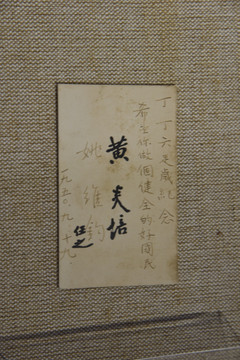 丁丁六足歲紀念
希望你做個健全的好國民
黃炎培
任之
姚維鈞
一九五〇、九、十九、